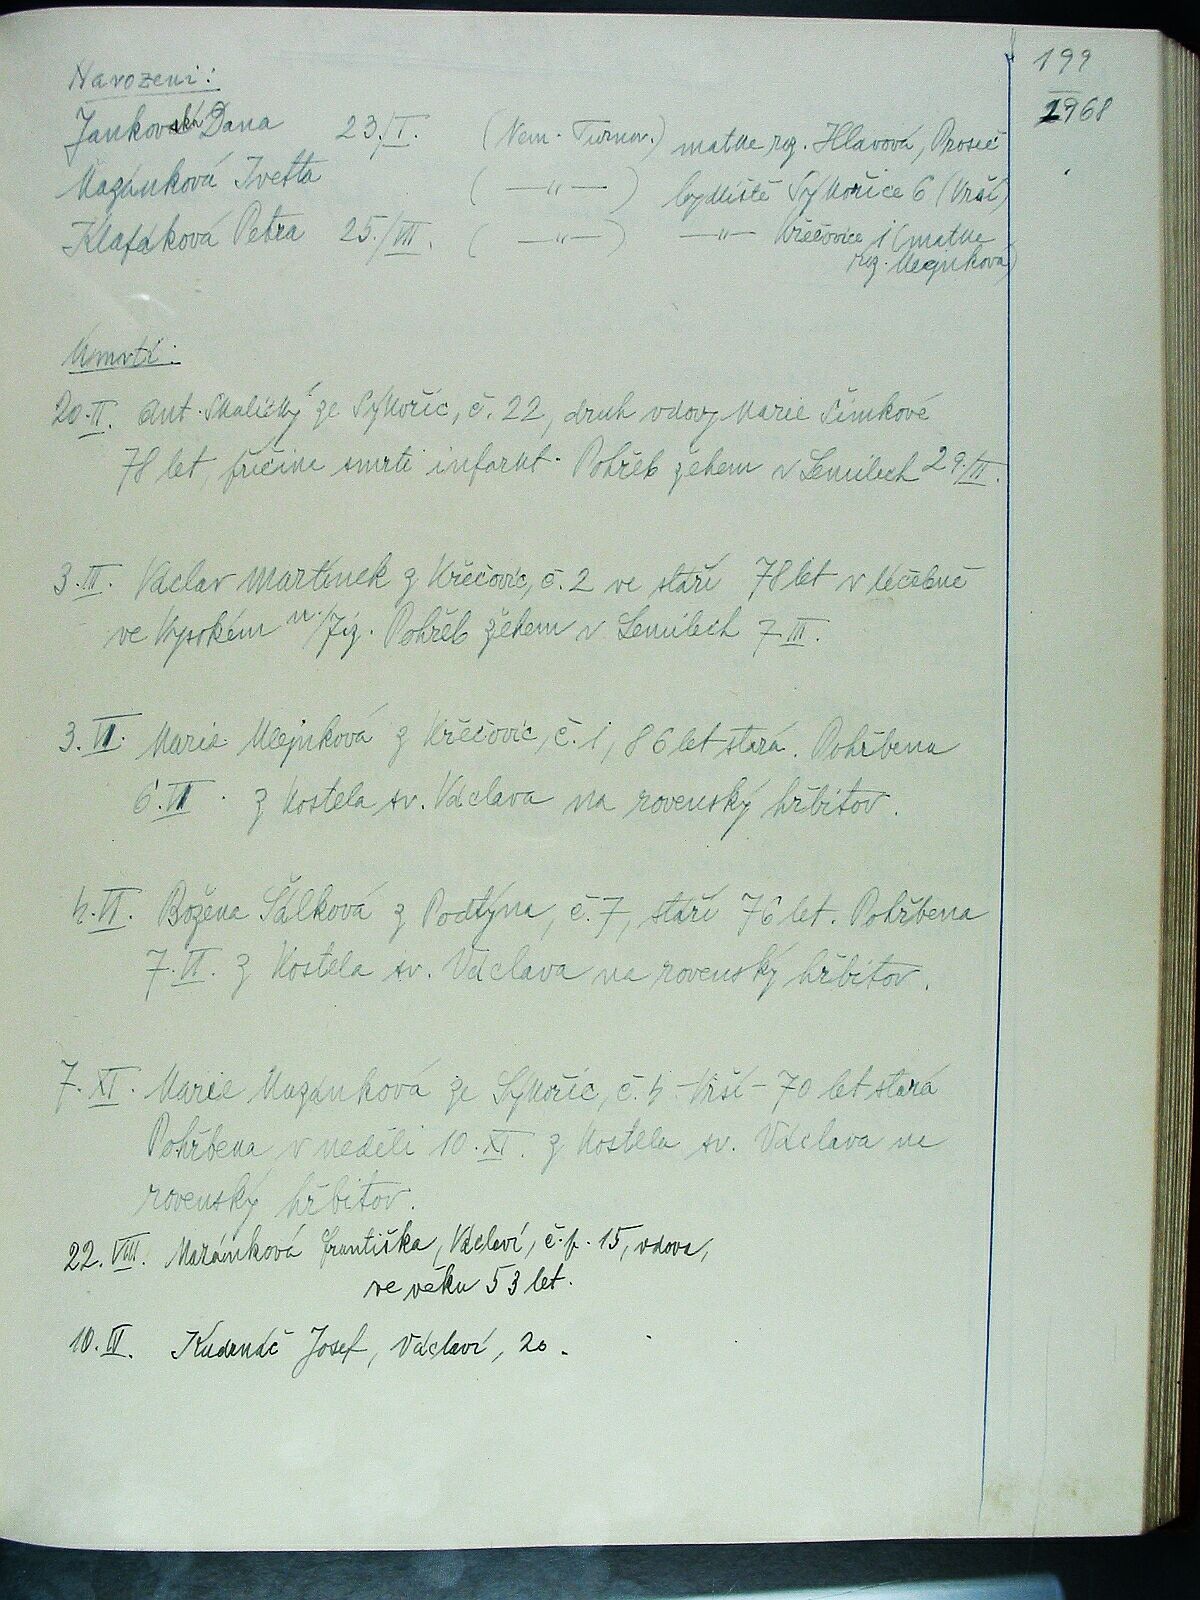 199
1968
Narozeni:
Jankovská Dana 23./I. (Nem. Turnov.) matka roz. Hlavová, Proseč
Mazánková Iveta ( —"— ) bydliště Sýkořice 6 (Vrší)
Klafáková Petra 25./VII. ( —"— ) —"— Křečovice 1 (matka
roz. Mejnková)
Úmrtí:
20.II. Ant. Skalický ze Sýkořic, č. 22, druh vdovy Marie Šimkové
78 let, příčina smrti infarkt. Pohřeb žehem v Semilech 29./II.
3.III. Václav Martinek z Křečovic, č. 2 ve stáří 78 let v léčebně
ve Vysokém n./Jiz. Pohřeb žehem v Semilech 7.III.
3.VI. Marie Mlejnková z Křečovic, č. 1, 86 let stará. Pohřbena
6.VI. z kostela sv. Václava na rovenský hřbitov.
4.VI. Božena Šálková z Podtýna, č. 7, stáří 76 let. Pohřbena
7.VI. z kostela sv. Václava na rovenský hřbitov.
7.XI. Marie Mazánková ze Sýkořic, č. 4 - Vrší - 70 let stará
Pohřbena v neděli 10.XI. z kostela sv. Václava na
rovenský hřbitov.
22.VIII. Mazánková Františka, Václaví, č.p. 15, vdova,
ve věku 53 let.
10.IV. Kudrnáč Josef, Václaví, 20.